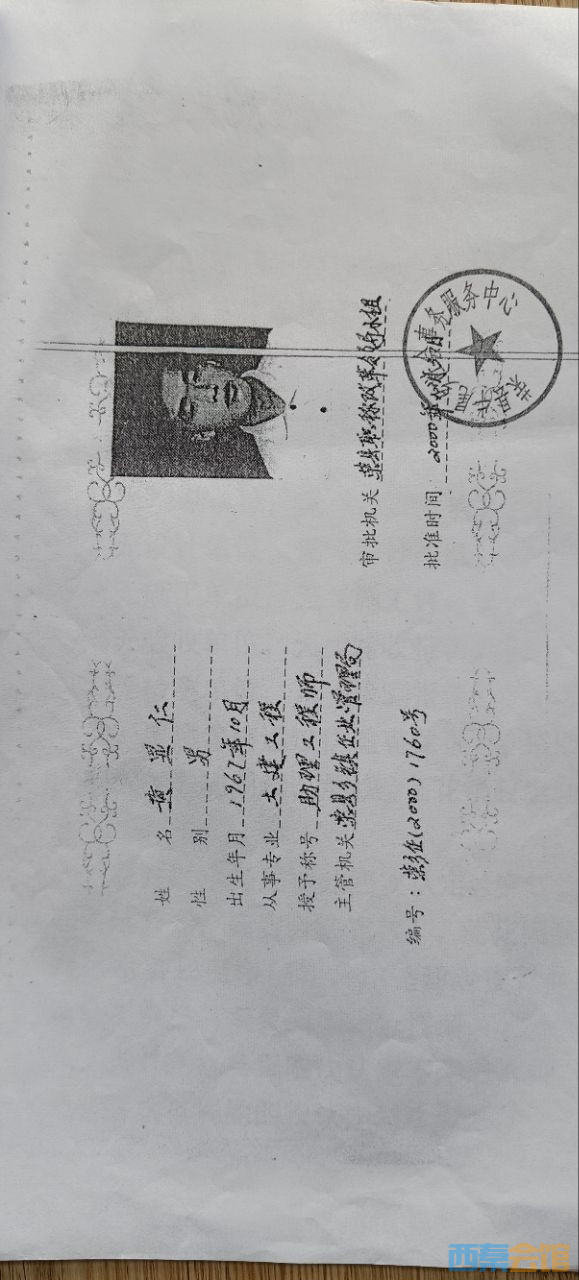 姓 名 黄显仁
性 别 男
出生年月 1967年10月
从事专业 土建工程
授予称号 助理工程师
主管机关 荣县乡镇企业管理局
编号：荣乡企(2000)1760号
审批机关 荣县职称改革领导小组
批准时间： 2000年
事务服务中心
西秦会馆